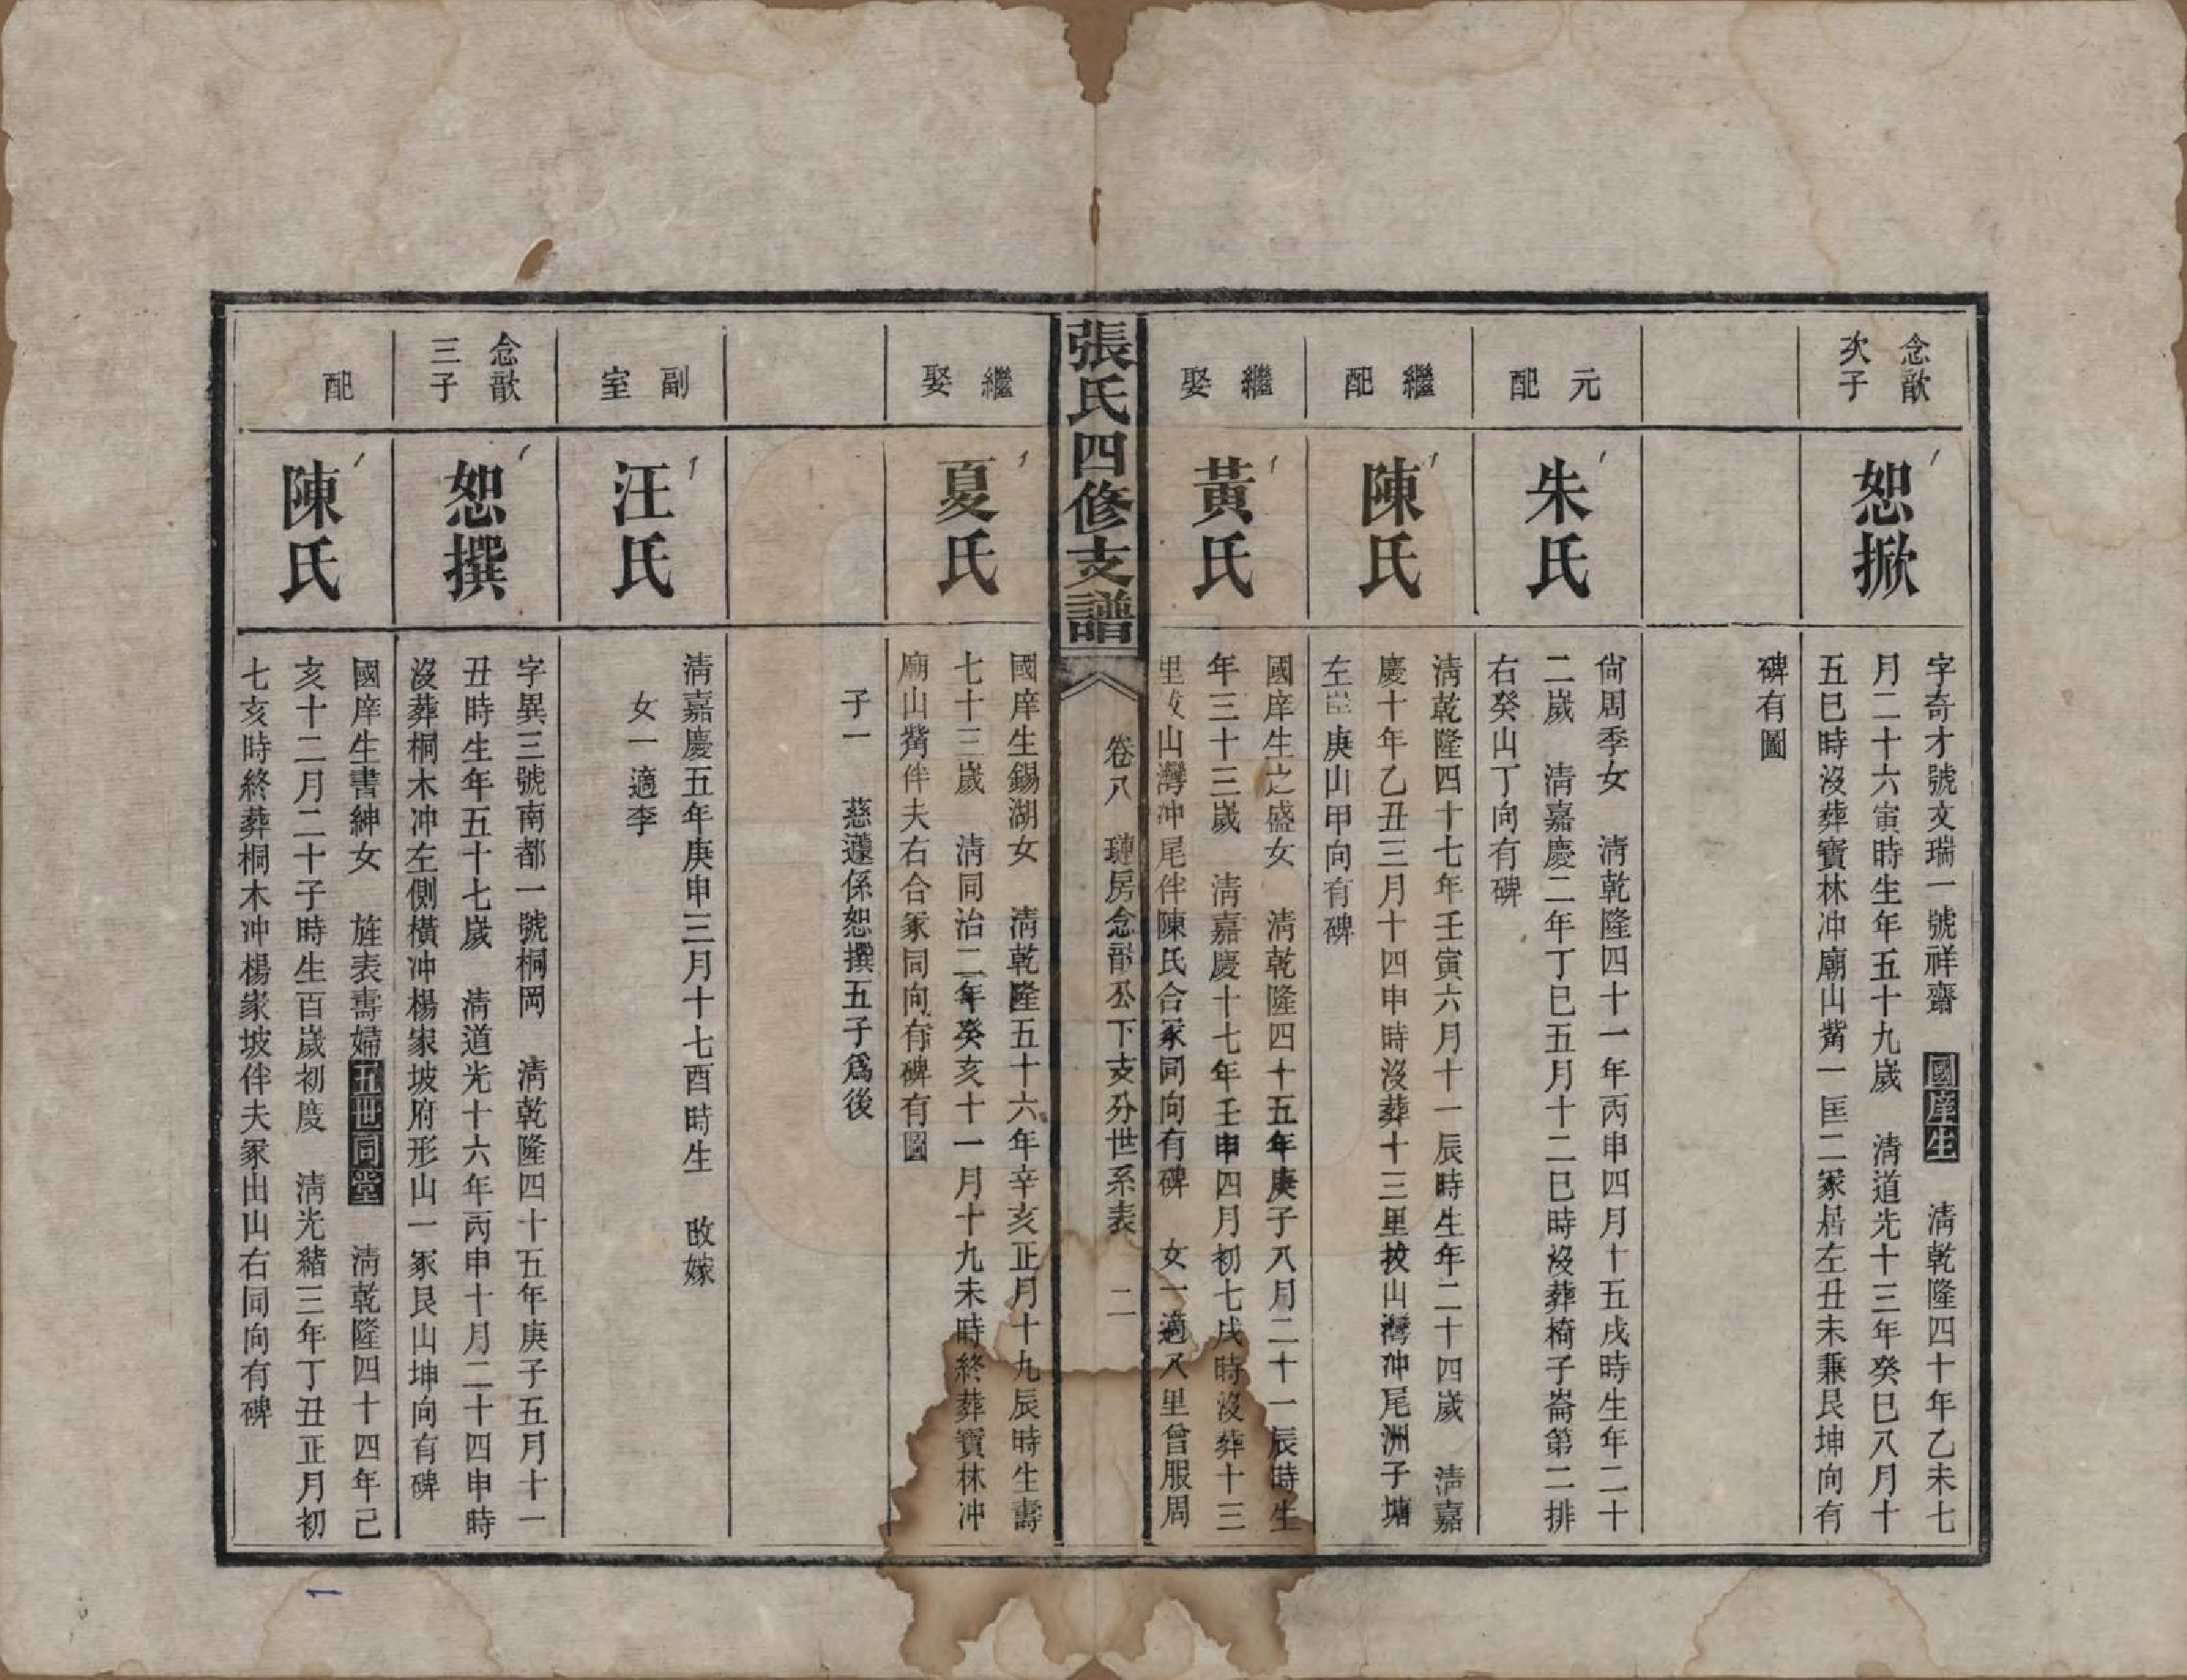 念歆
次子
恕掀
字奇才號文瑞一號祥齋　國庠生　清乾隆四十年乙未七
月二十六寅時生年五十九歲　清道光十三年癸巳八月十
五巳時沒葬寶林冲廟山觜一匡二冢居左丑未兼艮坤向有
碑有圖
元
配
朱氏
尙周季女　清乾隆四十一年丙申四月十五戌時生年二十
二歲　清嘉慶二年丁巳五月十二巳時沒葬椅子崙第二排
右癸山丁向有碑
繼
配
陳氏
清乾隆四十七年壬寅六月十一辰時生年二十四歲　清嘉
慶十年乙丑三月十四申時沒葬十三里坡山灣冲尾洲子塘
左　庚山甲向有碑
繼
娶
黃氏
國庠生之盛女　清乾隆四十五年庚子八月二十一辰時生
年三十三歲　清嘉慶十七年壬申四月初七戌時沒葬十三
里坡山灣冲尾伴陳氏合冢同向有碑　女一適八里曾服周
張氏四修支譜
卷八　璉房念歆公下支分世系表　二
繼
娶
夏氏
國庠生錫湖女　清乾隆五十六年辛亥正月十九辰時生壽
七十三歲　清同治二年癸亥十一月十九未時終葬寶林冲
廟山觜伴夫右合冢同向有碑有圖
子一　慈蘧係恕撰五子爲後
副
室
汪氏
清嘉慶五年庚申三月十七酉時生　改嫁
女一適李
念歆
三子
恕撰
字異三號南都一號桐岡　清乾隆四十五年庚子五月十一
丑時生年五十七歲　清道光十六年丙申十月二十四申時
沒葬桐木冲左側橫冲楊家坡府形山一冢艮山坤向有碑
配
陳氏
國庠生書紳女　旌表壽婦五世同堂　清乾隆四十四年己
亥十二月二十子時生百歲初度　清光緒三年丁丑正月初
七亥時終葬桐木冲楊家坡伴夫冢出山右同向有碑